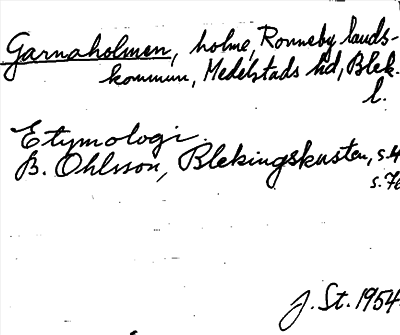 Garnaholmen, holme, Ronneby lands-
kommun, Medelstads hd, Blek.
l.
Etymologi.
B. Ohlsson, Blekingskusten, s.4
s.76
J. St. 1954